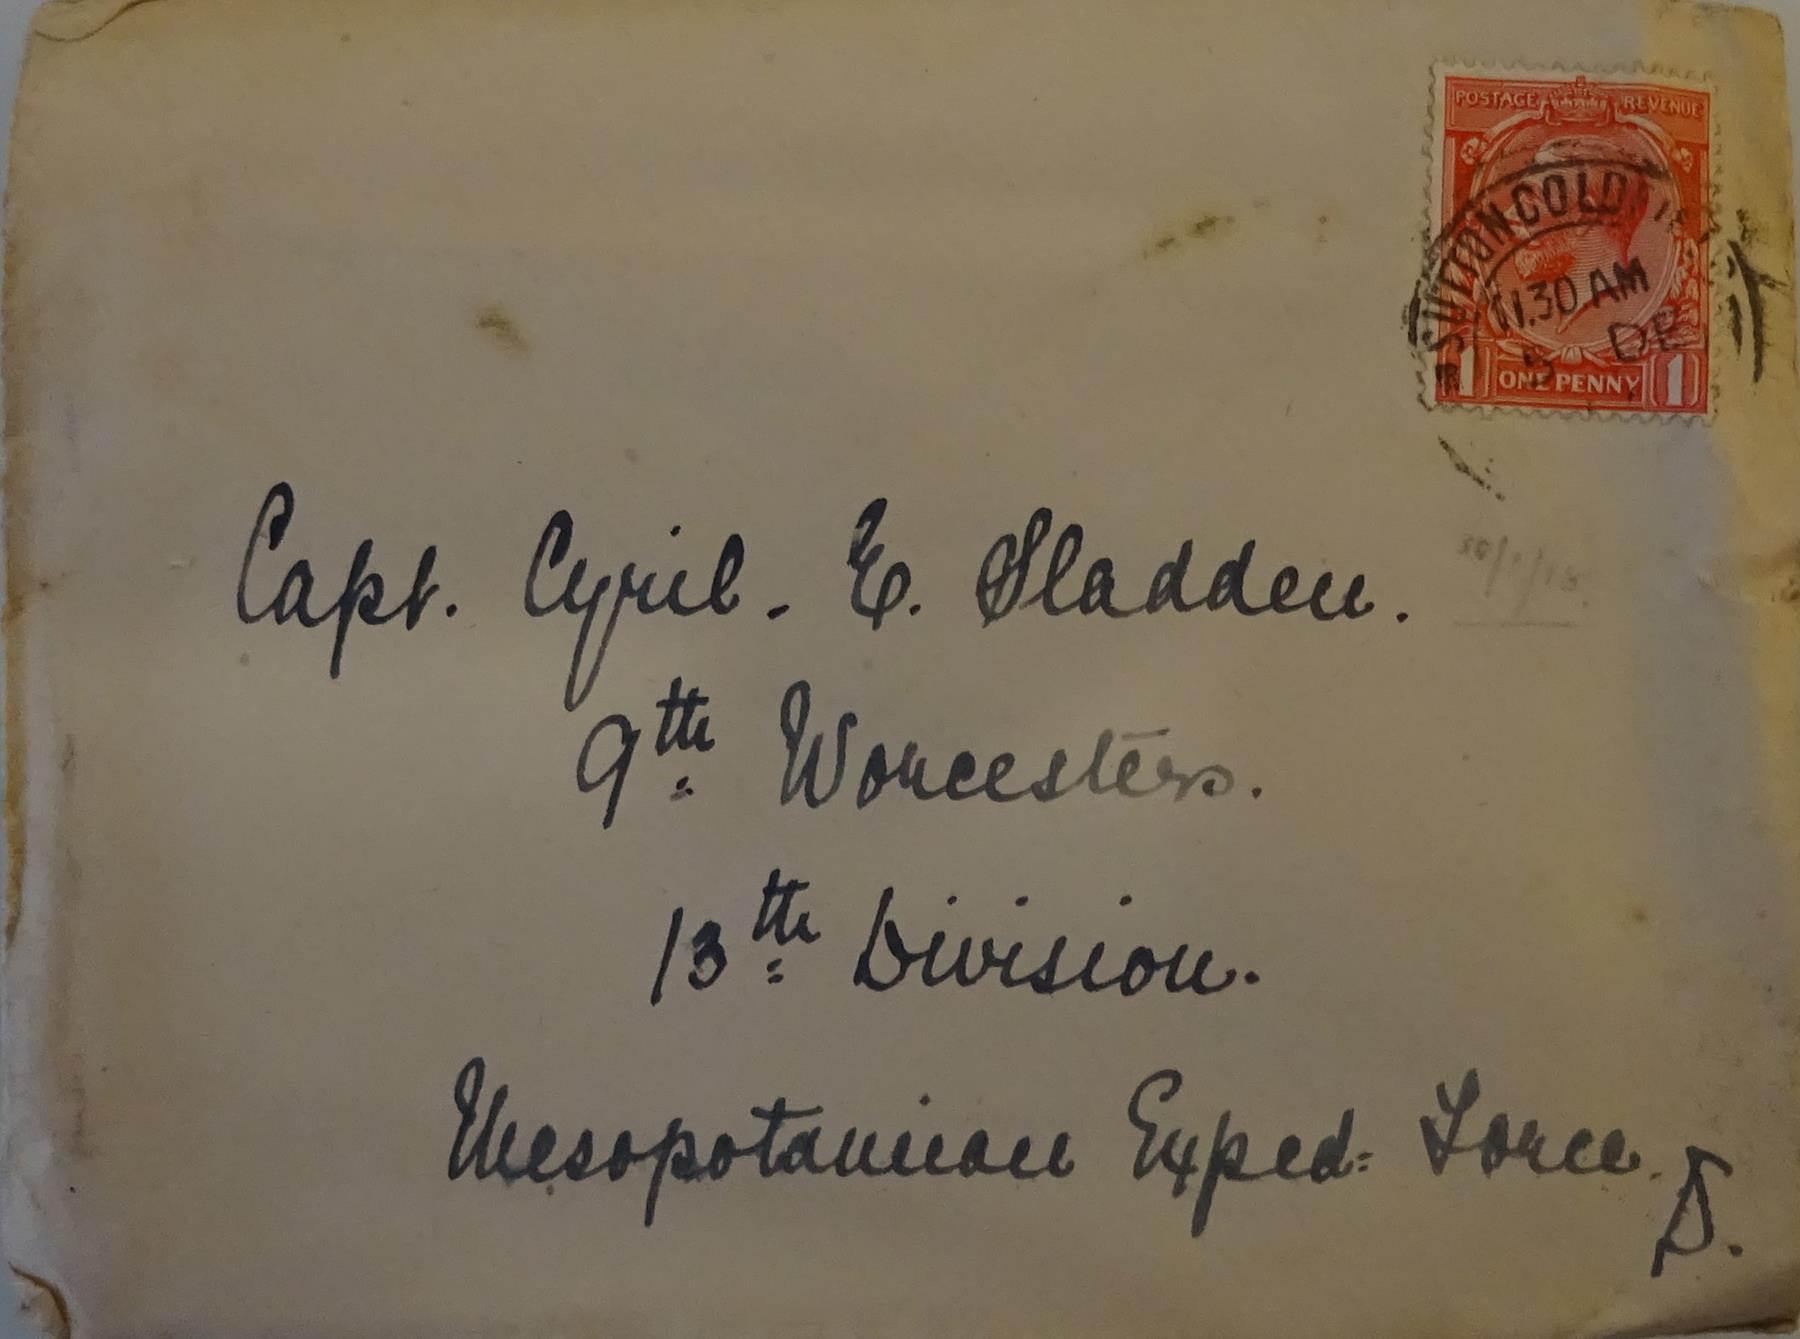 POSTAGE REVENUE
SUTTON COLDFIELD
11.30 AM
5 DE
1 ONE PENNY 1
Capt. Cyril. E. Sladden.
20/1/18.
9th Worcesters.
13th Division.
Mesopotamian Exped: Force.
D.